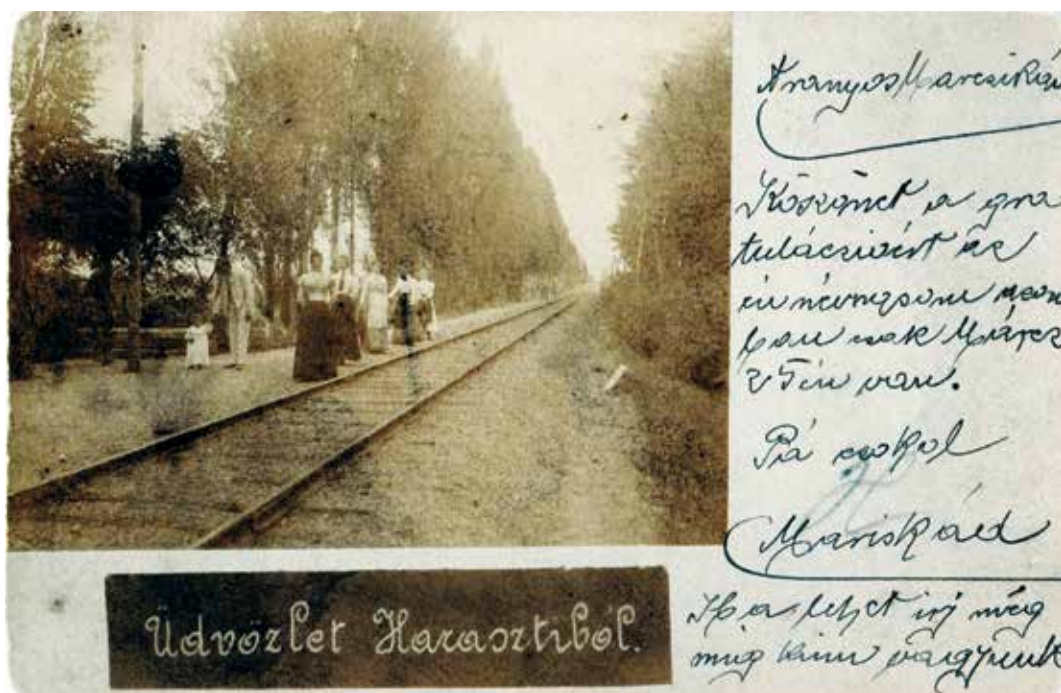 Aranyos Marcsikám
Köszönet a gra
tuláczióért az
én névnapom azon
ban csak Márcz
25én van.
Pá csokol
Mariskád
Ha lehet irj még
mig kinn vagyunk
Üdvözlet Harasztiból.